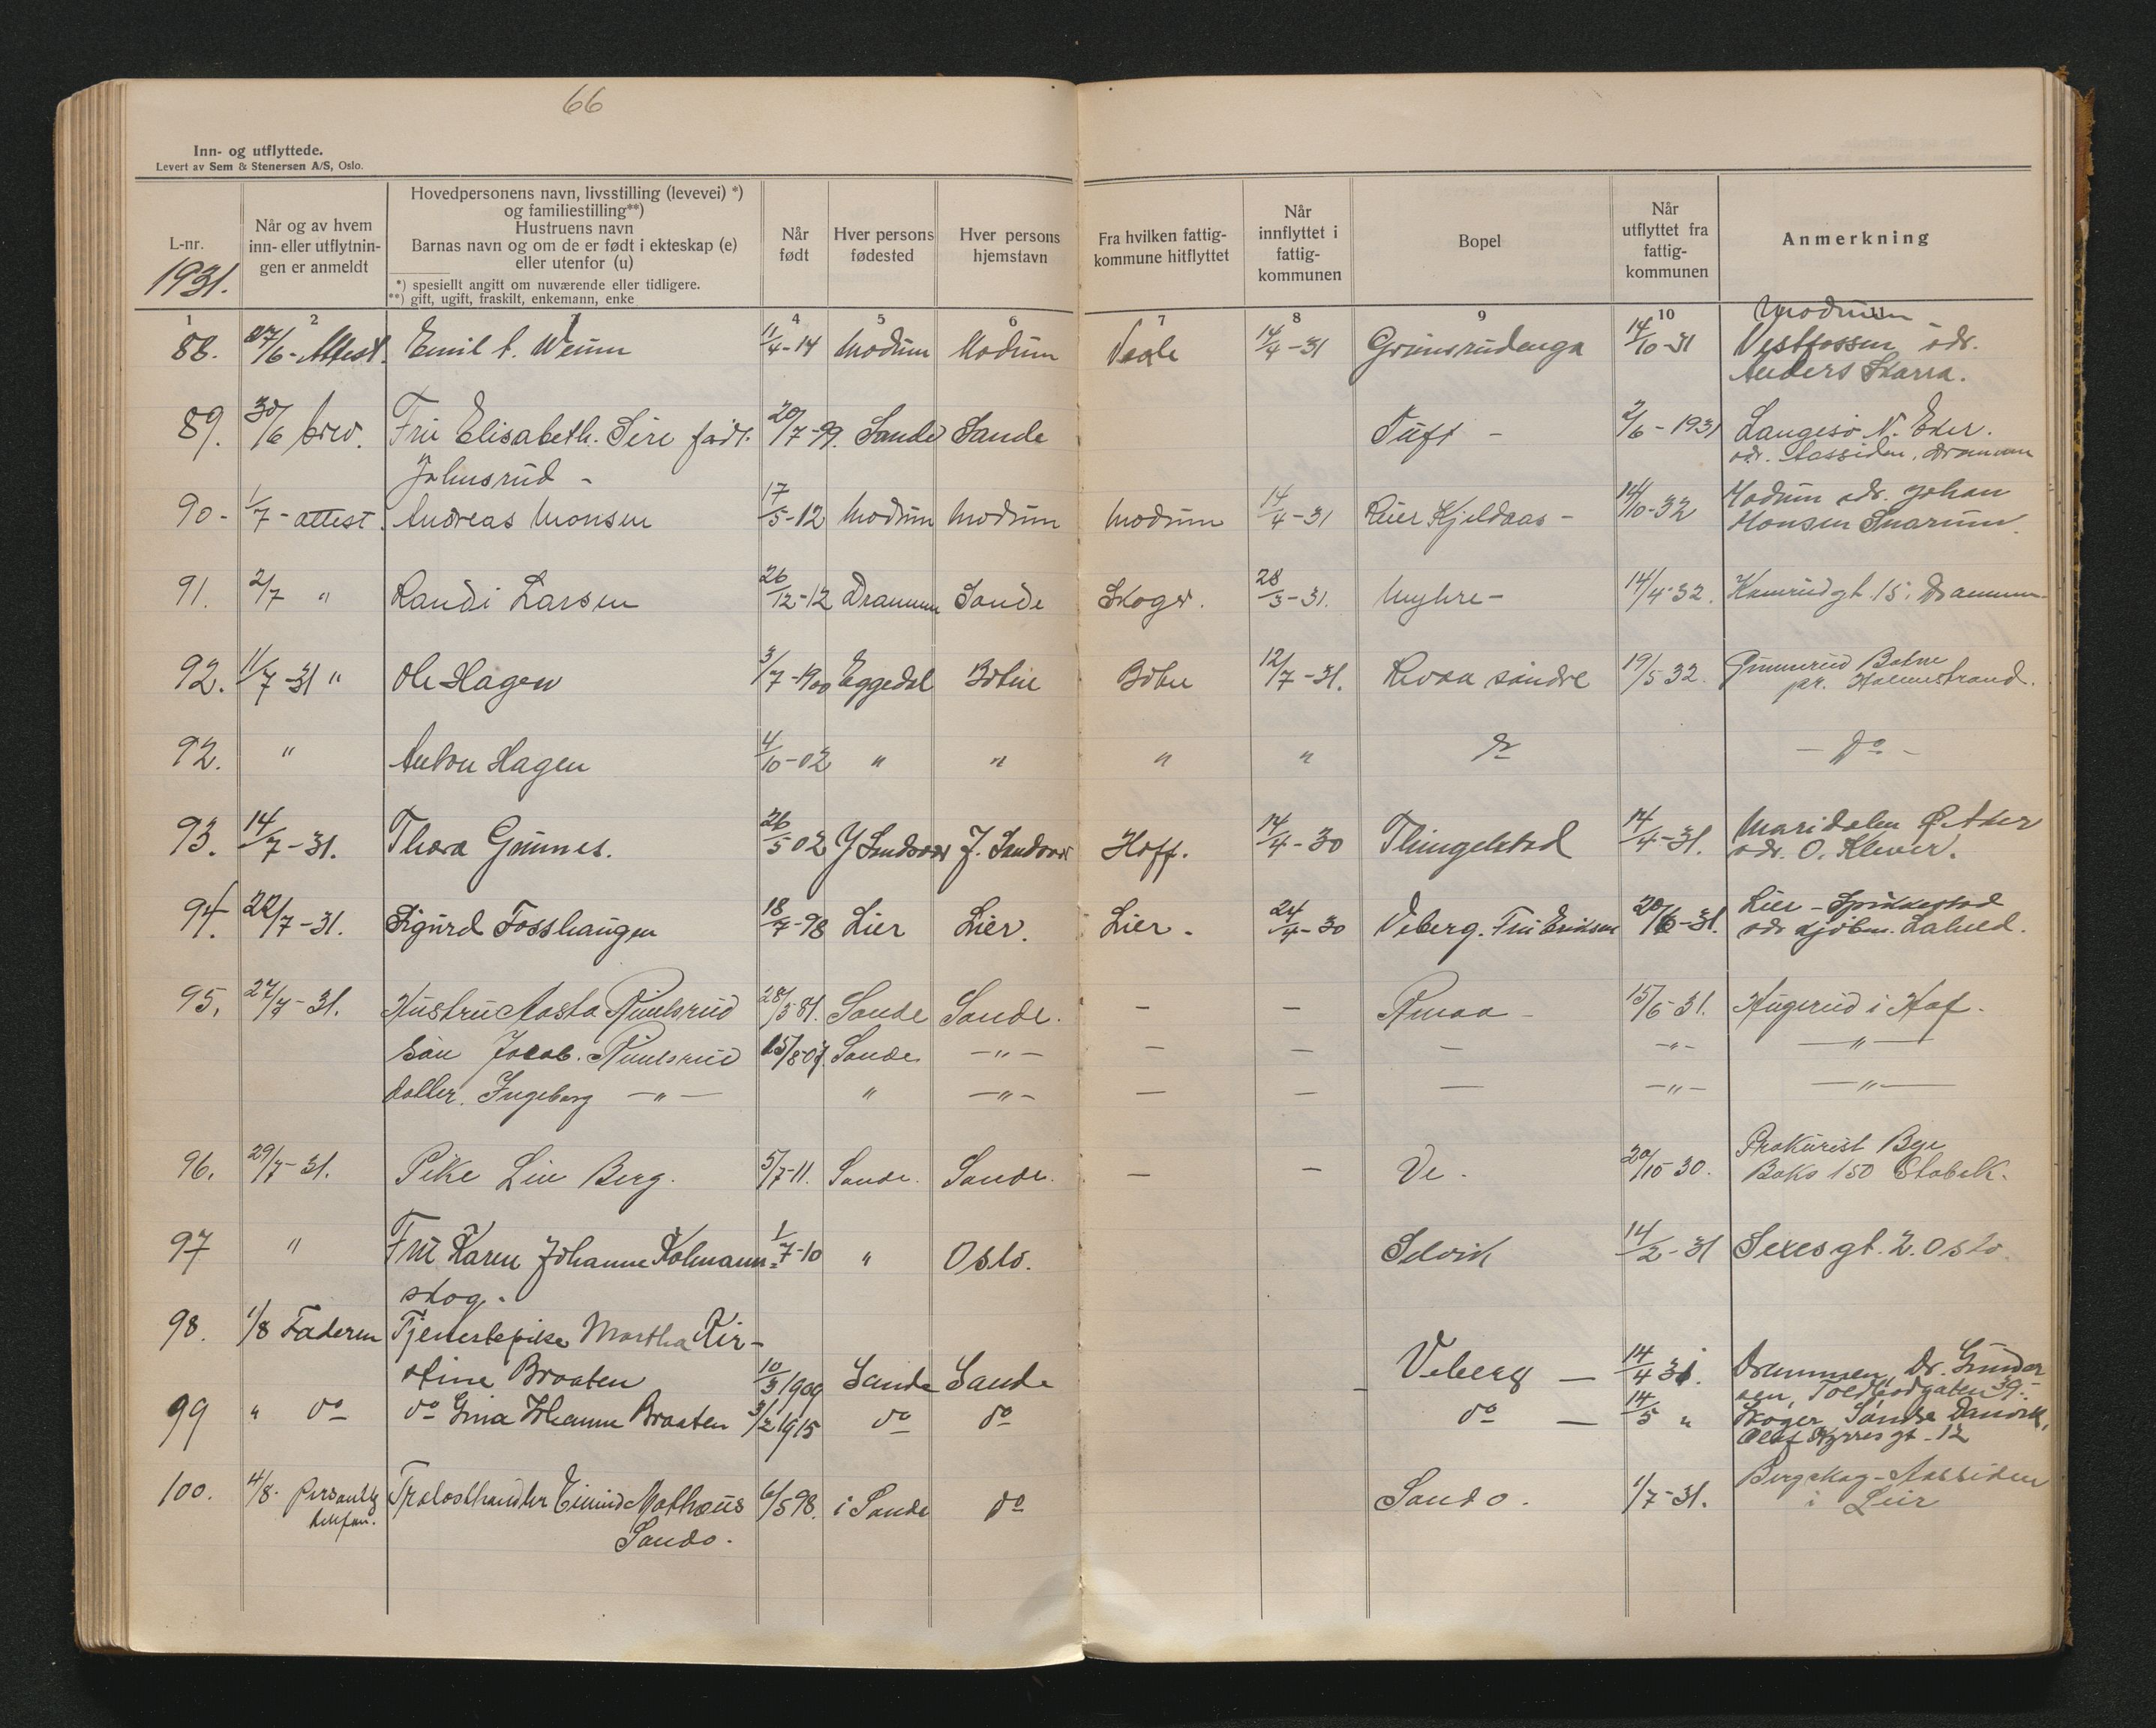 66
Inn- og utflyttede.
Levert av Sem & Stenersen A/S, Oslo.
L-nr.
1931.
Når og av hvem
inn- eller utflytnin-
gen er anmeldt
Hovedpersonens navn, livsstilling (levevei) *)
og familiestilling**)
Hustruens navn
Barnas navn og om de er født i ekteskap (e)
eller utenfor (u)
*) spesiellt angitt om nuværende eller tidligere.
**) gift, ugift, fraskilt, enkemann, enke
Når
født
Hver persons
fødested
Hver persons
hjemstavn
Fra hvilken fattig-
kommune hitflyttet
Når
innflyttet i
fattig-
kommunen
Bopel
Når
utflyttet fra
fattig-
kommunen
Anmerkning
1 2 4 5 6 7 8 9 10
88. 27/6 - Attest. Emil 11/4-14 Modum Modum 14/4-31 Grimsrudenga 14/10-31 Modum
Vestfossen adr.
Anders Skarra.
89. 30/6 brev. Fru Elisabeth født 20/7-99. Sande Sande Tuft - 2/6-1931 Langesø N. Eker.
adr. Aassiden, Drammen
Johnsrud -
90- 1/7-attest. Andreas Monsen 17/5-12 Modum Modum Modum 14/4-31 Kjeldaas - 14/10-32 Modum adr. Johan
Monsen Snarum.
91. 2/7 " Randi Larsen 26/12-12 Drammen Sande Skoger. 28/3-31. Myhre- 14/4-32. 15, Drammen
92. 11/7-31 " Ole Hagen 3/7-1900 Eggedal Botne Botne 12/7-31. Revaa søndre 19/5 32 Botne
pr. Holmestrand.
92. " Anton Hagen 4/10-02 " " " " do - do -
93. 14/7-31. Thora 26/5 02 Y Sandsvær Y. Sandsvær Hoff. 14/4-30 14/4-31. Maridalen Ø. Aker
adr. O. Klever.
94. 22/7-31. Sigurd Fosshaugen 18/7-98 Lier Lier. Lier. 24/4-30 Veberg. Fru Eriksen 20/6-31. Lier - Spikkestad
adr kjøbm. Lahell.
95. 27/7-31. Hustru Aasta 28/3 81. Sande Sande. - - 15/6-31. Hagerud i Hof.
Søn Jacob. 15/8 07 Sande -"- - - - -"- -"-
datter. Ingeborg -"- " -"- - - - -"- -"-
96. 29/7-31. Pike Liv Berg. 5/7-11. Sande. Sande. - - Ve. 20/10-30. Prokurist Bye
Boks 150 Stabek.
97 " Fru Karen Johanne Kolmann= 1/7-10 " Oslo. Selvik 14/2-31 Sexesgt. 2. Oslo.
skog.
98. 1/8 Faderen Tjenestepike Martha Kir-
stine Braaten 10/3 1909 Sande Sande - Veberg - 14/4 31. Drammen, Dr. Gunder
sen, Toldbodgaten 39.
99 " do do Gina Johanne Braaten 3/2 1915 do do do - 14/5 " Skoger, Søndre Danvik,
Olaf Kyrres gt. 12
100. 4/8. Personlig
telefon. Trælasthandler Eivind Mathæus 6/5 98. i Sande do Sando. 1/7-31. Bergskog - Aassiden
i Lier
Sando.